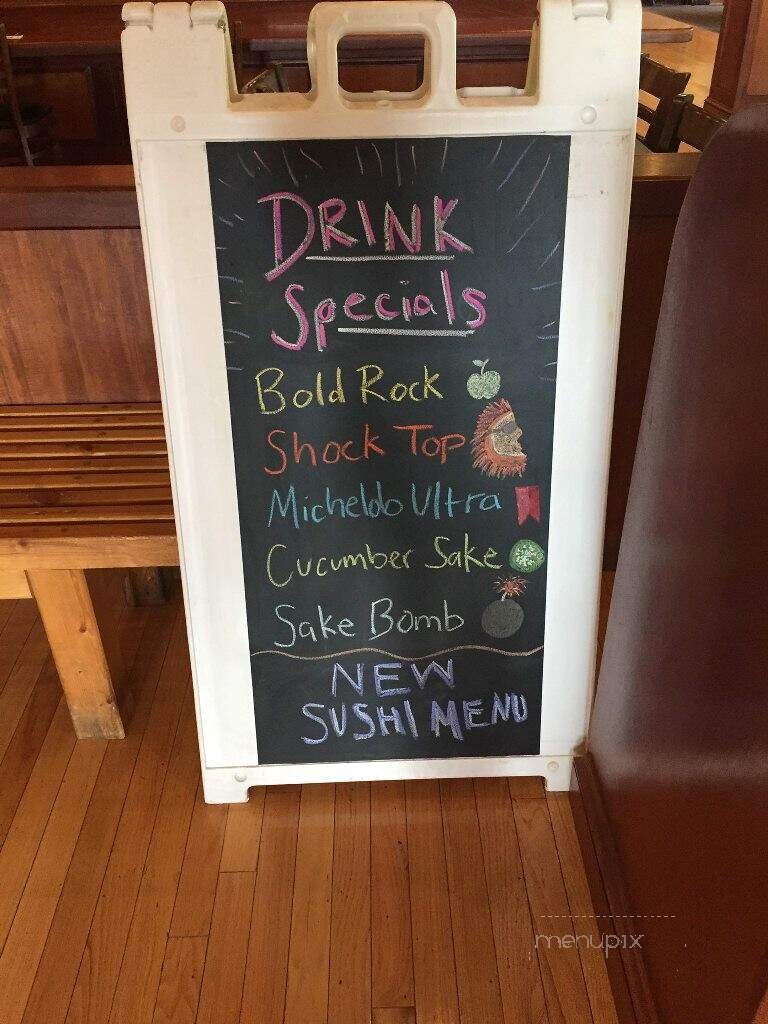 DRINK
Specials
Bold Rock
Shock Top
Micheldo Ultra
Cucumber Sake
Sake Bomb
NEW
SUSHI MENU
menupix